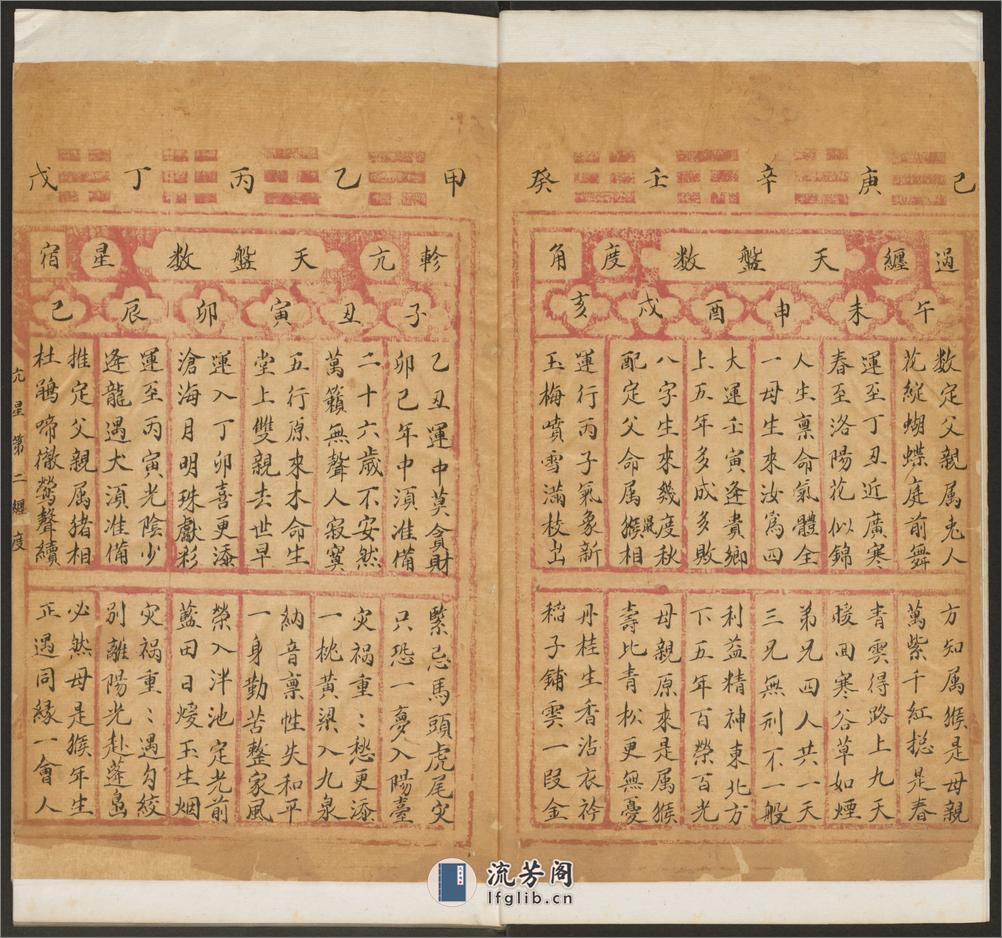 己 庚 辛 壬 癸
過 纏 天盤数 度 角
午 未 申 酉 戌 亥
数定父親属老人
花綻蝴蝶庭前舞
運至丁丑近廣寒
春至洛陽花似錦
人生禀命氣體全
一母生來汝爲四
大運壬寅逢貴鄉
上五年多成多敗
八字生來幾度秋
配定父命属猴相
鼠
運行丙子氣象新
玉梅噴雪滿枝出
方知属猴是母親
萬紫千紅捴是春
青雲得路上九天
暖回寒谷草如煙
弟兄四人共一天
三兄無刑不一般
利益精神東北方
下五年百榮百光
母親原來是属猴
壽比青松更無憂
丹桂生香沾衣衿
稲子鋪雲一段金
甲 乙 丙 丁 戊
軫 亢 天盤数 星 宿
子 丑 寅 卯 辰 巳
乙丑運中莫貪財
卯巳年中湏准備
二十六歲不安然
萬籟無聲人寂寞
五行原來木命生
堂上雙親去世早
運入丁卯喜更添
滄海月明珠獻彩
運至丙寅光陰少
逢龍遇犬湏准備
推定父親属猪相
杜鵑啼徹鶯聲續
緊忌馬頭虎尾灾
只恐一夢入陽臺
灾禍重〻愁更添
一桃黄梁入九泉
納音禀性失和平
一身勤苦整家風
榮入泮池定光前
藍田日煖玉生烟
灾禍重〻遇勾絞
別離陽光赴蓬島
必然母是猴年生
正遇同緣一會人
亢星第二纏度
流芳阁
lfglib.cn